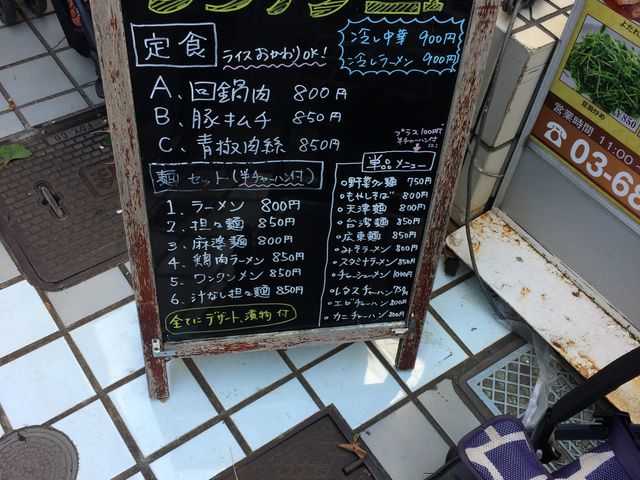 定食
ライスおかわりOK!
冷し中華 900円
冷しラーメン 900円
A、回鍋肉 800円
B、豚キムチ 850円
C、青椒肉絲 850円
プラス100円で
半チャーハン付に!
麺セット(半チャーハン付)
1. ラーメン 800円
2. 担々麺 850円
3. 麻婆麺 800円
4. 鶏肉ラーメン 850円
5. ワンタンメン 850円
6. 汁なし担々麺 850円
全てにデザート、漬物付
単品メニュー
野菜タン麺 750円
もやしそば 800円
天津麺 800円
台湾麺 850円
広東麺 850円
みそラーメン 800円
スタミナラーメン 850円
チャーシューメン 1000円
レタスチャーハン
エビチャーハン 800円
カニチャーハン 800円
よだれ
¥850
営業時間 11:00
☎03-68